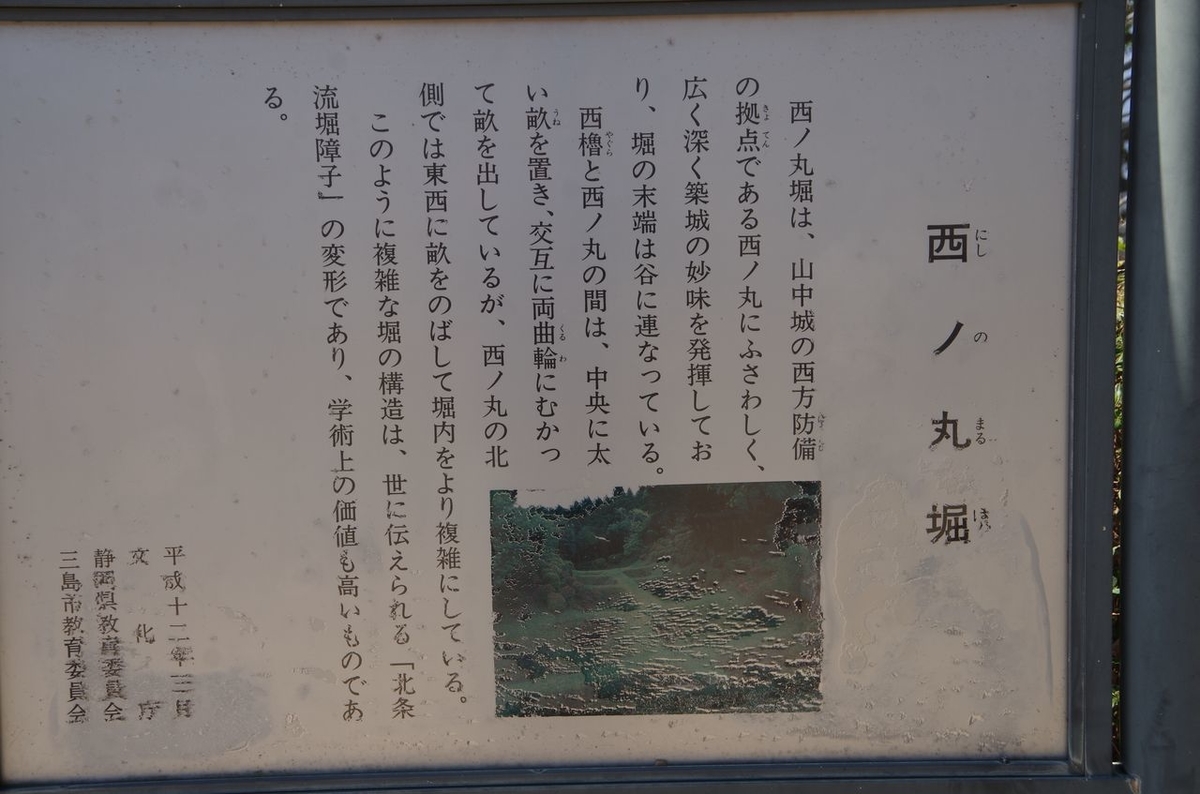 西ノ丸堀
西ノ丸堀は、山中城の西方防備
の拠点である西ノ丸にふさわしく、
広く深く築城の妙味を発揮してお
り、堀の末端は谷に連なっている。
西櫓と西ノ丸の間は、中央に太
い畝を置き、交互に両曲輪にむかっ
て畝を出しているが、西ノ丸の北
側では東西に畝をのばして堀内をより複雑にしている。
このように複雑な堀の構造は、世に伝えられる「北条
流堀障子」の変形であり、学術上の価値も高いものであ
る。
平成十二年三月
文化庁
静岡県教育委員会
三島市教育委員会